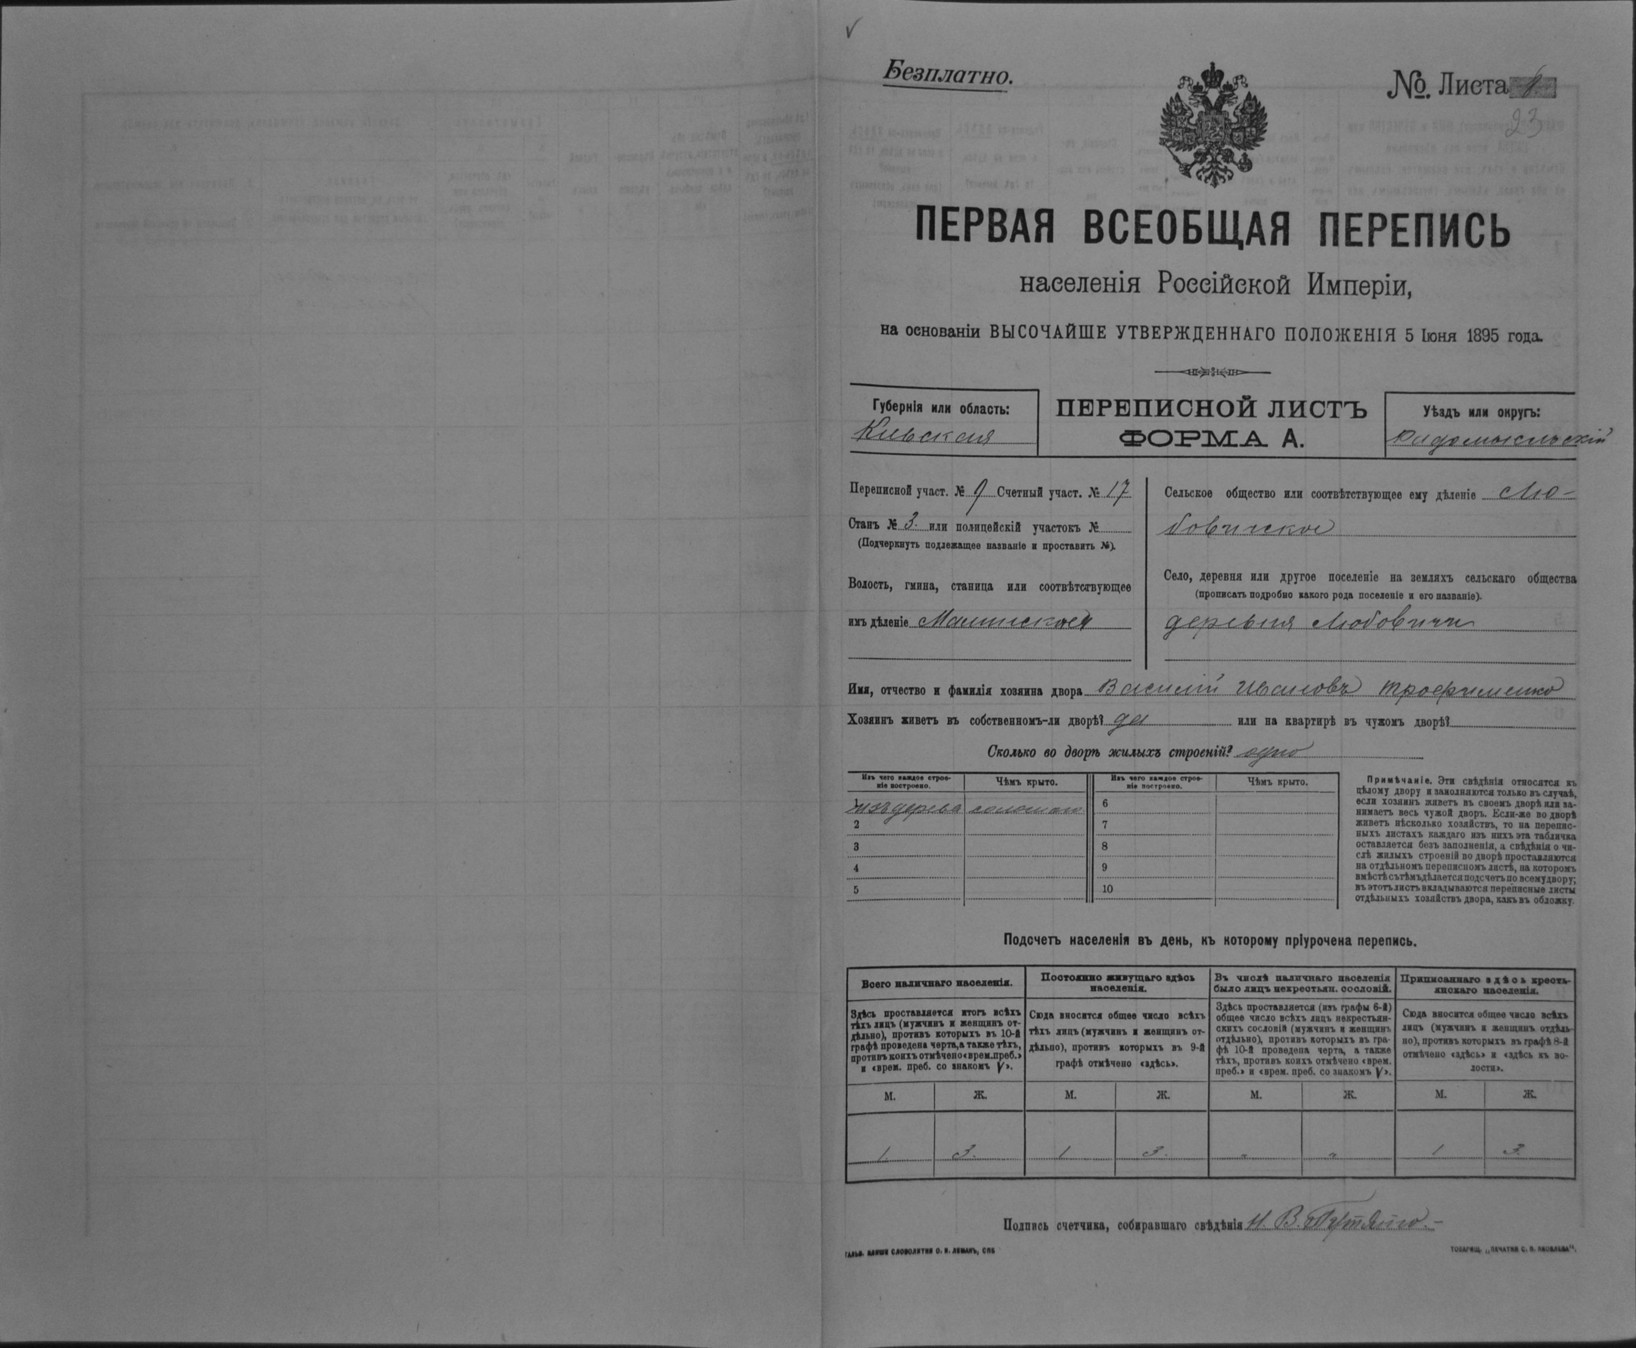 Безплатно.
№. Листа
23
ПЕРВАЯ ВСЕОБЩАЯ ПЕРЕПИСЬ
населенія Россійской Имперіи,
на основаніи ВЫСОЧАЙШЕ УТВЕРЖДЕННАГО ПОЛОЖЕНІЯ 5 Іюня 1895 года.
Губернія или область:
Кіевская
ПЕРЕПИСНОЙ ЛИСТЪ
ФОРМА А.
Уѣздъ или округъ:
Радомысльскій
Переписной участ. № 9 Счетный участ. № 17
Станъ № 3. или полицейскій участокъ №
(Подчеркнуть подлежащее названіе и проставить №).
Волость, гмина, станица или соотвѣтствующее
имъ дѣленіе Малинская
Сельское общество или соотвѣтствующее ему дѣленіе Лю-
бовичское
Село, деревня или другое поселеніе на земляхъ сельскаго общества
(прописать подробно какого рода поселеніе и его названіе).
деревня Любовичи
Имя, отчество и фамилія хозяина двора Василій Ивановъ Трофименко
Хозяинъ живетъ въ собственномъ-ли дворѣ? да или на квартирѣ въ чужомъ дворѣ?
Сколько во дворѣ жилыхъ строеній? одно
Изъ чего каждое строе-
ніе построено.
Чѣмъ крыто.
Изъ чего каждое строе-
ніе построено.
Чѣмъ крыто.
изъ дерева соломою 6
2 7
3 8
4 9
5 10
Примѣчаніе. Эти свѣдѣнія относятся къ
цѣлому двору и заполняются только въ случаѣ,
если хозяинъ живетъ въ своемъ дворѣ или за-
нимаетъ весь чужой дворъ. Если-же во дворѣ
живетъ нѣсколько хозяйствъ, то на перепис-
ныхъ листахъ каждаго изъ нихъ эта табличка
оставляется безъ заполненія, а свѣдѣнія о чи-
слѣ жилыхъ строеній во дворѣ проставляются
на отдѣльномъ переписномъ листѣ, на которомъ
вмѣстѣ съ тѣмъ дѣлается подсчетъ по всему двору;
въ этотъ листъ вкладываются переписные листы
отдѣльныхъ хозяйствъ двора, какъ въ обложку.
Подсчетъ населенія въ день, къ которому пріурочена перепись.
Всего наличнаго населенія.
Здѣсь проставляется итогъ всѣхъ
тѣхъ лицъ (мужчинъ и женщинъ от-
дѣльно), противъ которыхъ въ 10-й
графѣ проведена черта, а также тѣхъ,
противъ коихъ отмѣчено «врем. преб.»
и «врем. преб. со знакомъ V».
Постоянно живущаго здѣсь
населенія.
Сюда вносится общее число всѣхъ
тѣхъ лицъ (мужчинъ и женщинъ от-
дѣльно), противъ которыхъ въ 9-й
графѣ отмѣчено «здѣсь».
Въ числѣ наличнаго населенія
было лицъ некрестьян. сословій.
Здѣсь проставляется (изъ графы 6-й)
общее число всѣхъ лицъ некрестьян-
скихъ сословій (мужчинъ и женщинъ
отдѣльно), противъ которыхъ въ гра-
фѣ 10-й проведена черта, а также
тѣхъ, противъ коихъ отмѣчено «врем.
преб.» и «врем. преб. со знакомъ V».
Приписаннаго здѣсь кресть-
янскаго населенія.
Сюда вносится общее число всѣхъ
лицъ (мужчинъ и женщинъ отдѣль-
но), противъ которыхъ въ графѣ 8-й
отмѣчено «здѣсь» и «здѣсь въ во-
лости».
М. Ж. М. Ж. М. Ж. М. Ж.
1 3. 1 3. „ „ 1 3.
Подпись счетчика, собиравшаго свѣдѣнія Н. В.
ГАЛЬВ. КЛИШЕ СЛОВОЛИТНИ О. И. ЛЕМАНЪ, СПБ
ТОВАРИЩ. „ПЕЧАТНЯ С. П. ЯКОВЛЕВА".